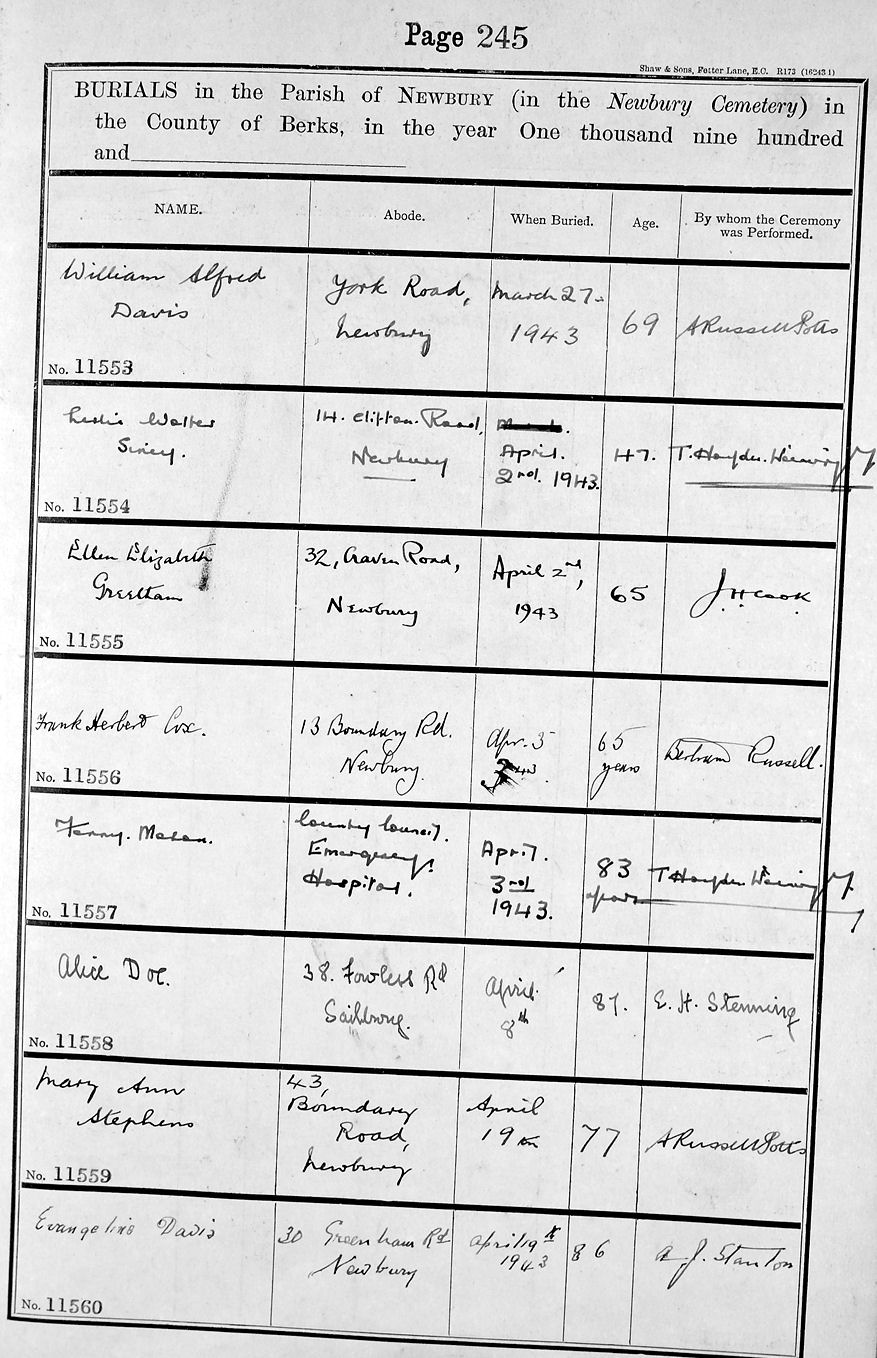 Page 245
Shaw & Sons, Fetter Lane, E.C. R173 (16243 1)
BURIALS in the Parish of NEWBURY (in the Newbury Cemetery) in
the County of Berks, in the year One thousand nine hundred
and
NAME.
Abode.
When Buried.
Age.
By whom the Ceremony
was Performed.
William Alfred
Davis
No. 11553
York Road,
Newbury
March 27.
1943
69
A Russell Potts
Leslie Walter
No. 11554
14. Clifton. Road,
Newbury
April.
2nd. 1943.
47.
T. Hayden.
Ellen Elizabeth
Greetham
No. 11555
32, Craven Road,
Newbury
April 2nd,
1943
65
J. H. Cook
Frank Herbert Cox.
No. 11556
13 Boundary Rd.
Newbury.
Apr. 3
65
years
Bertram Russell.
Fanny. Mason.
No. 11557
County Council.
Emergency
Hospital.
April.
3rd
1943.
83
years
T Hayden
Alice Doe.
No. 11558
38. Rd
April
8th
87.
E. H. Stenning
Mary Ann
Stephens
No. 11559
43,
Boundary
Road,
Newbury
April
19th
77
A Russell Potts
Evangeline Davis
No. 11560
30 Greenham Rd
Newbury
April 19th
1943
86
A. J. Stanton